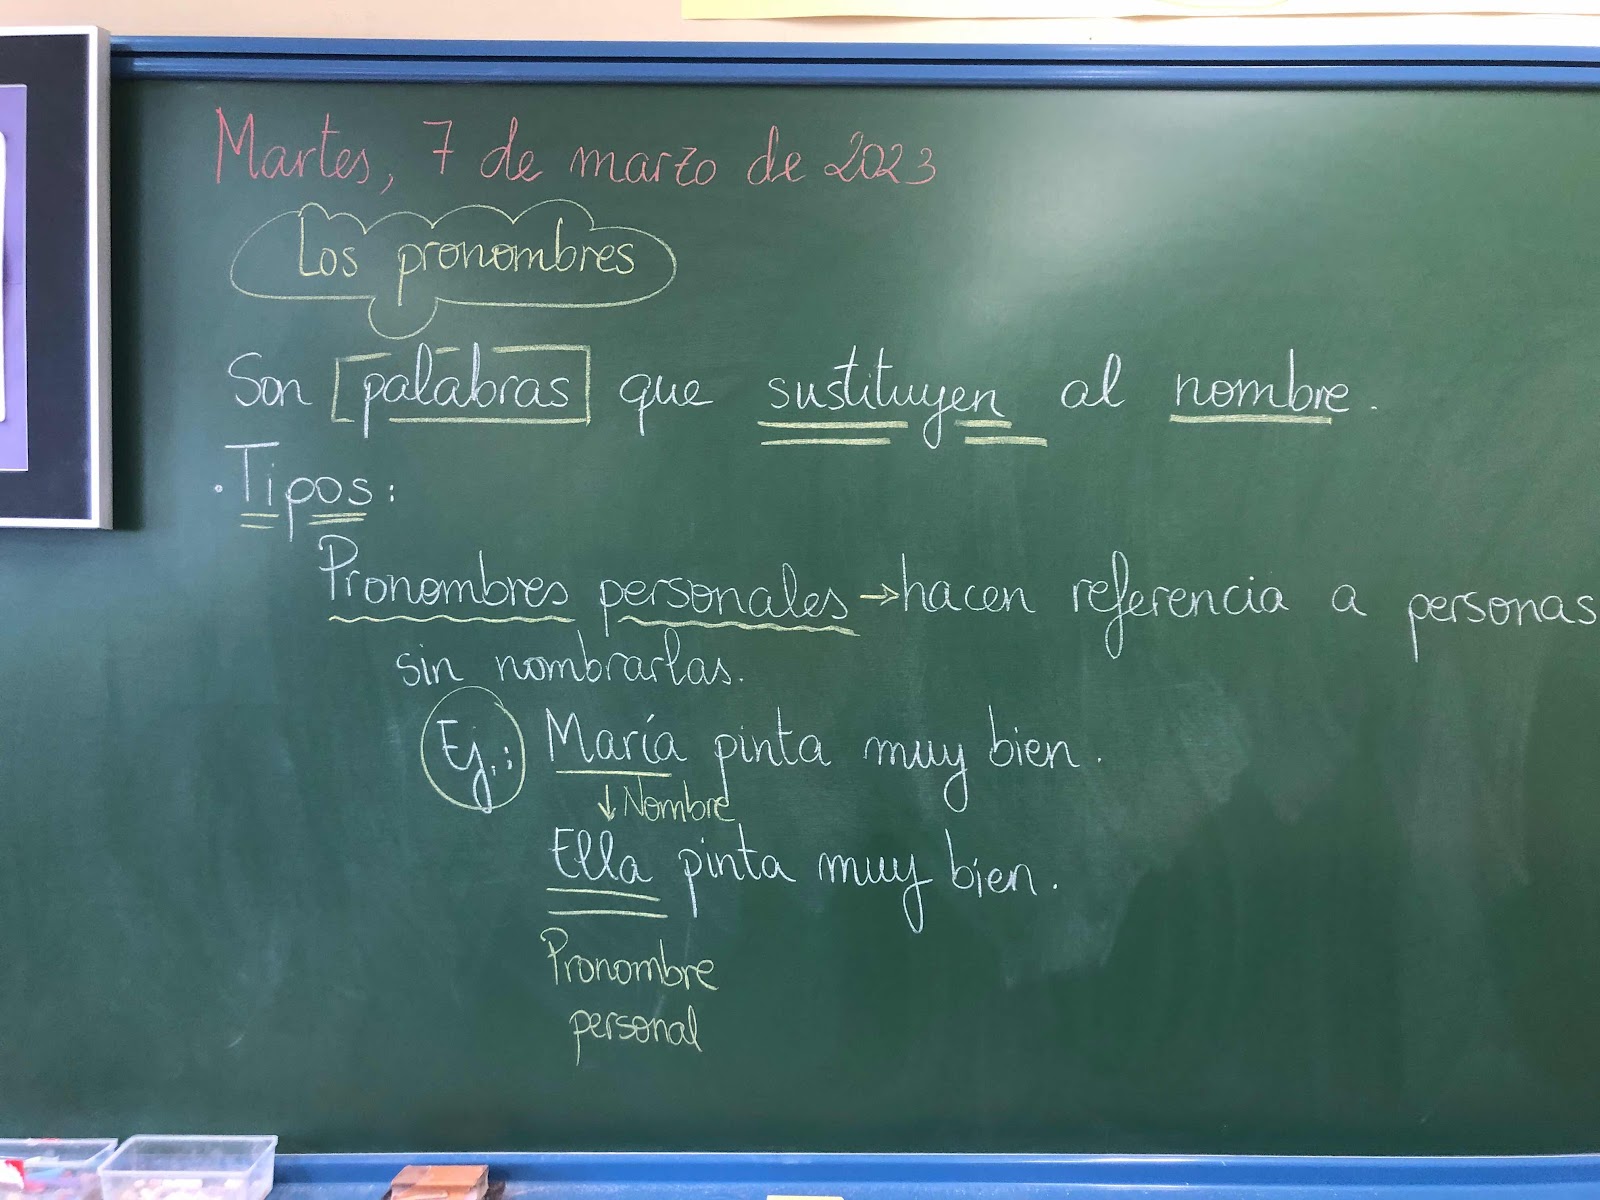 Martes, 7 de marzo de 2023
Los pronombres
Son palabras que sustituyen al nombre.
· Tipos:
Pronombres personales → hacen referencia a personas
sin nombrarlas.
Ej.: María pinta muy bien.
↓ Nombre
Ella pinta muy bien.
Pronombre
personal